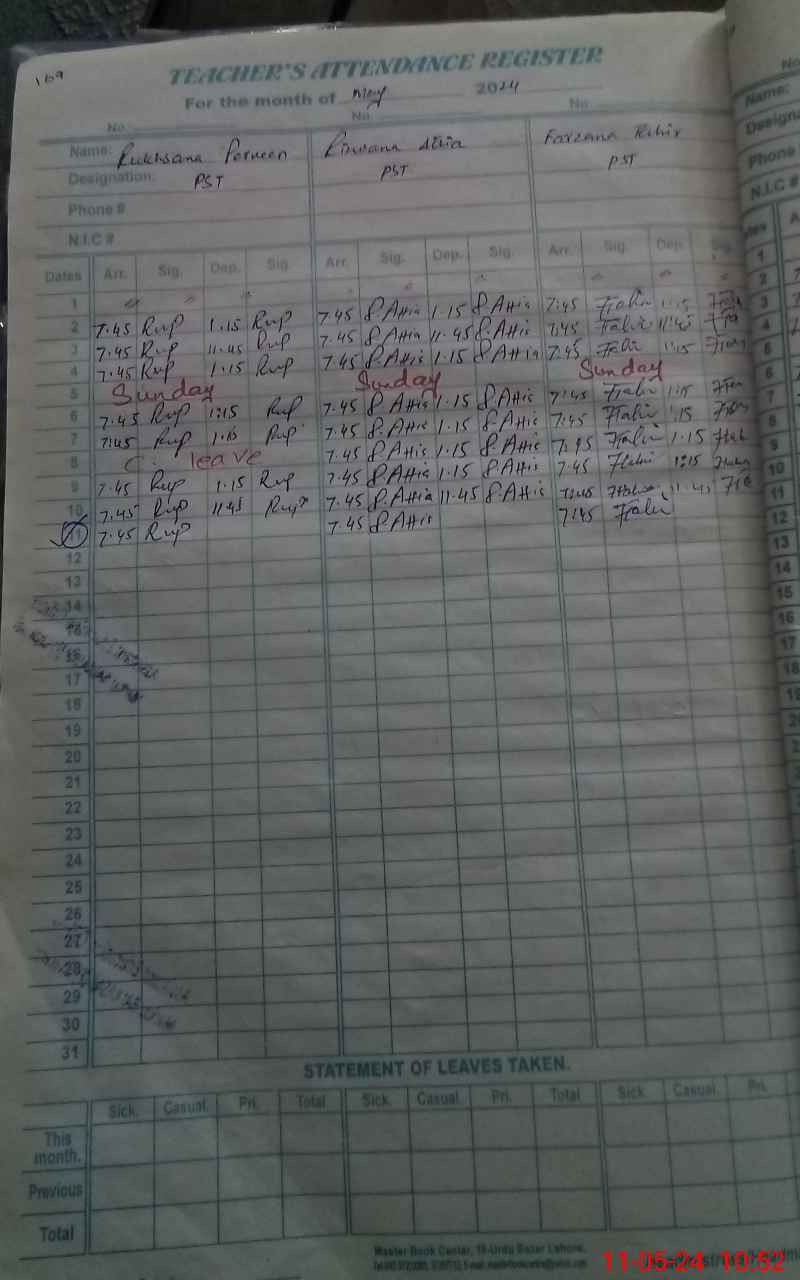 169
TEACHER'S ATTENDANCE REGISTER
For the month of May 2024
No. No. No.
Name: Rukhsana Parveen Rizwana Attia Farzana Tahir
Designation: PST PST PST
Phone #
N.I.C #
Dates Arr. Sig. Dep. Sig. Arr. Sig. Dep. Sig. Arr. Sig. Dep. Sig.
1
2 7.45 Rup 1.15 Rup 7.45 R.Attia 1.15 R.Attia 7:45 1:15
3 7.45 Rup 11.45 Rup 7.45 R.Attia 11.45 R.Attia 7:45 11:45
4 7.45 Rup 1.15 Rup 7.45 R.Attia 1.15 R.Attia 7:45 1:15
5 Sunday Sunday Sunday
6 7.45 Rup 1:15 Rup 7.45 R.Attia 1.15 R.Attia 7:45 1:15
7 7:45 Rup 1.15 Rup 7.45 R.Attia 1.15 R.Attia 7:45 1:15
8 C. leave 7.45 R.Attia 1.15 R.Attia 7:45 1.15
9 7.45 Rup 1.15 Rup 7.45 R.Attia 1.15 R.Attia 7.45 1:15
10 7.45 Rup 11.45 Rup 7.45 R.Attia 11.45 R.Attia 7:45 11:45
11 7.45 Rup 7.45 R.Attia 7:45
12
13
14
15
16
17
18
19
20
21
22
23
24
25
26
27
28
29
30
31
STATEMENT OF LEAVES TAKEN.
Sick. Casual. Pri. Total Sick. Casual. Pri. Total Sick. Casual. Pri.
This month.
Previous
Total
Master Book Center, 19-Urdu Bazar Lahore.
11-05-24 10:52